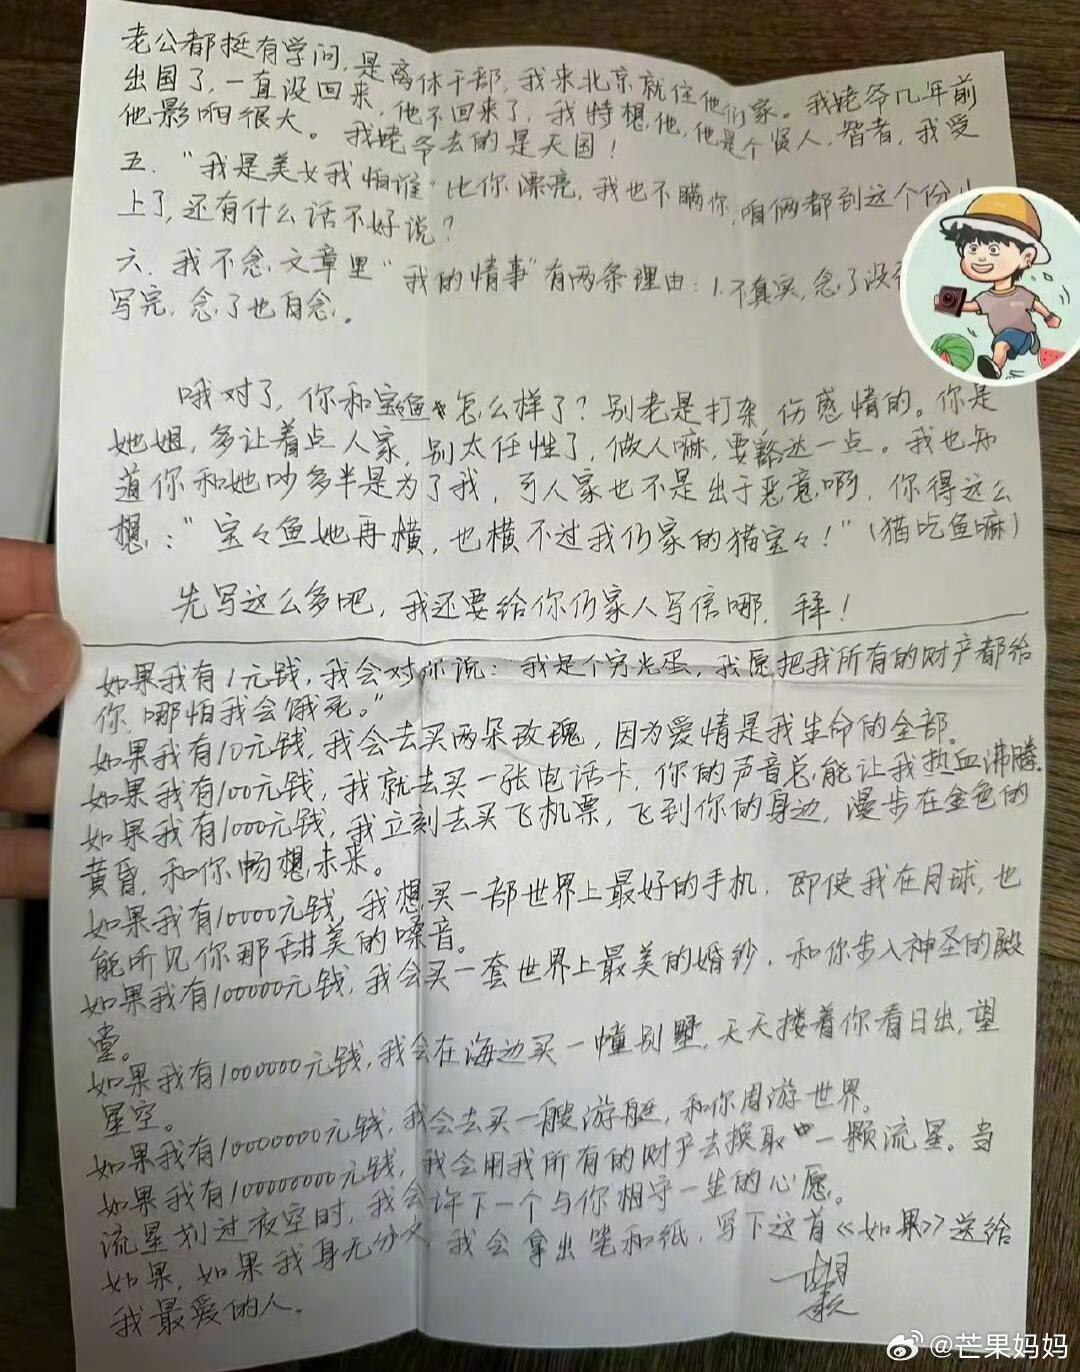 老公都挺有学问,是离休干部,我来北京就住他们家。我姥爷几年前
出国了,一直没回来,他不回来了,我特想他,他是个贤人,智者,我受
他影响很大。我姥爷去的是天国!
五."我是美女我怕谁"比你漂亮,我也不瞒你,咱俩都到这个份
上了,还有什么话不好说?
六.我不念文章里"我的情事"有两条理由:1.不真实,念了没
写完,念了也白念。
哦对了,你和宝鱼怎么样了?别老是打杂,伤感情的。你是
她姐,多让着点人家,别太任性了,做人嘛,要豁达一点。我也知
道你和她吵多半是为了我,可人家也不是出于恶意啊,你得这么
想:"宝々鱼她再横,也横不过我们家的猫宝々!"(猫吃鱼嘛)
先写这么多吧,我还要给你们家人写信哪,拜!
如果我有1元钱,我会对你说:我是个穷光蛋,我愿把我所有的财产都给
你,哪怕我会饿死。"
如果我有10元钱,我会去买两朵玫瑰,因为爱情是我生命的全部。
如果我有100元钱,我就去买一张电话卡,你的声音总能让我热血沸腾。
如果我有1000元钱,我立刻去买飞机票,飞到你的身边,漫步在金色的
黄昏,和你畅想未来。
如果我有10000元钱,我想买一部世界上最好的手机,即使我在月球,也
能听见你那甜美的嗓音。
如果我有100000元钱,我会买一套世界上最美的婚纱,和你步入神圣的殿
堂。
如果我有1000000元钱,我会在海边买一幢别墅,天天搂着你看日出,望
星空。
如果我有10000000元钱,我会去买一艘游艇,和你周游世界。
如果我有100000000元钱,我会用我所有的财产去换取一颗流星。当
流星划过夜空时,我会许下一个与你相守一生的心愿。
如果,如果我身无分文,我会拿出笔和纸,写下这首《如果》送给
我最爱的人。
@芒果妈妈